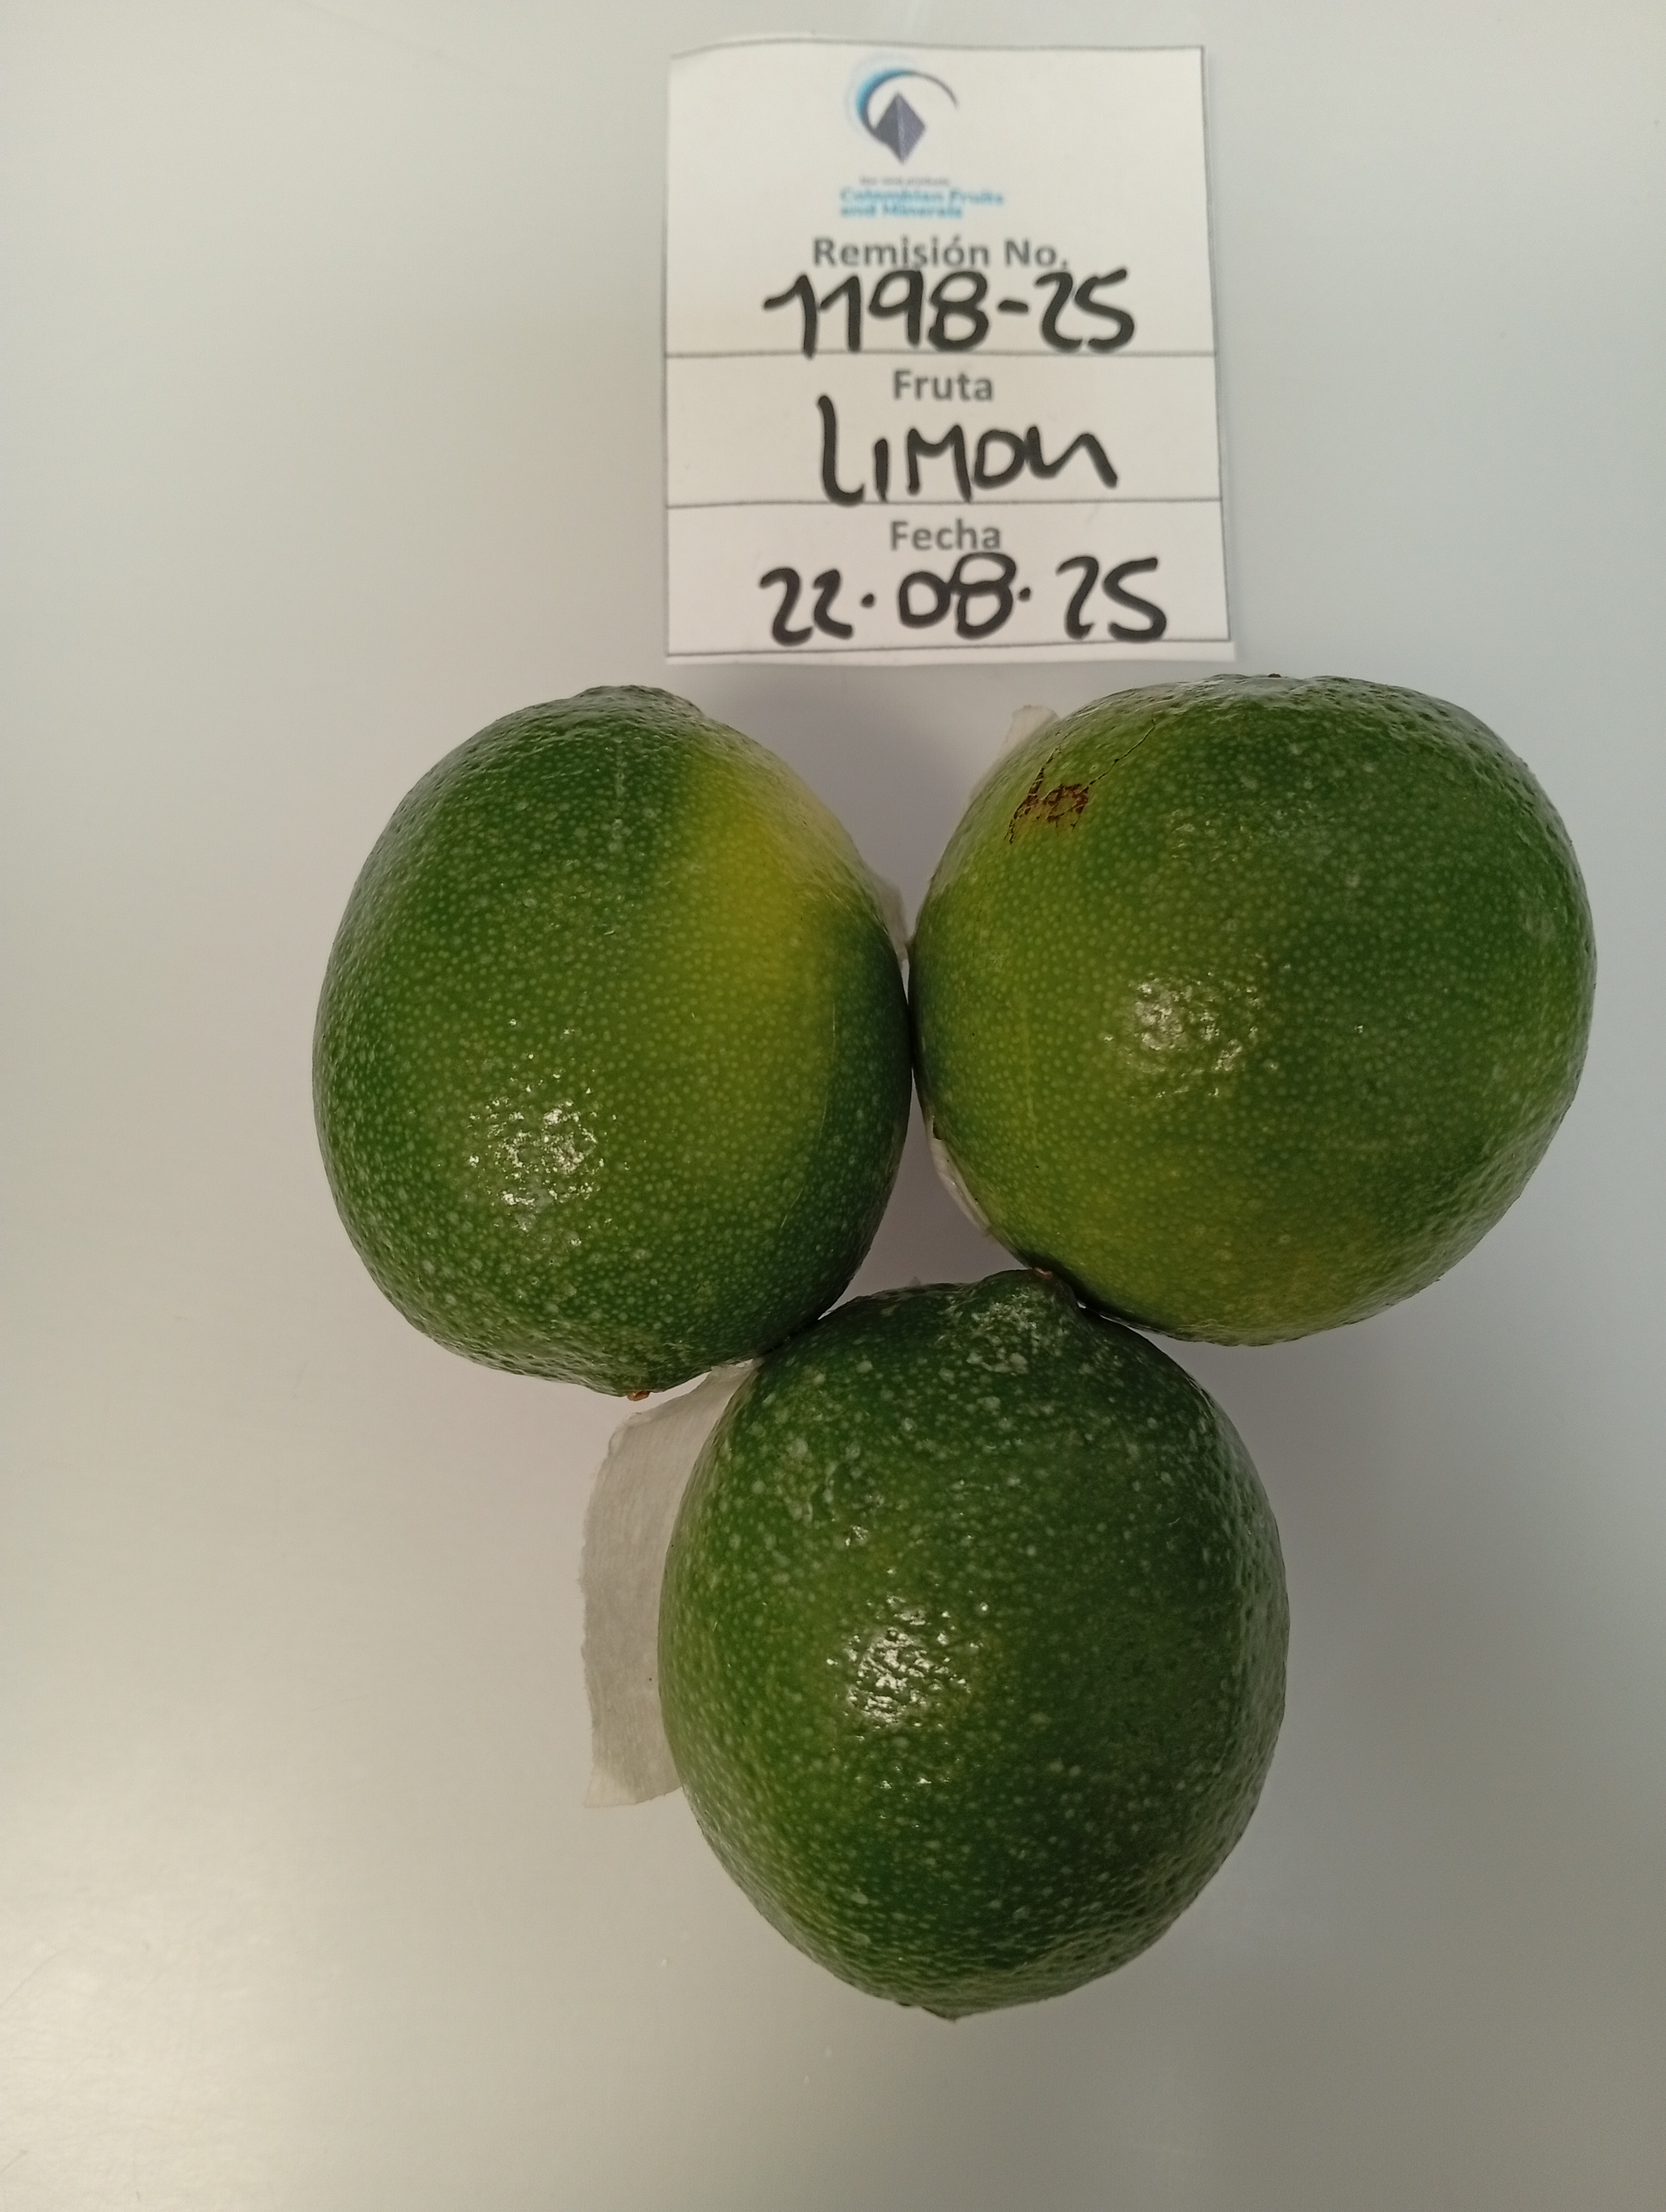 Colombian Fruits
and Minerals
Remisión No.
1198-25
Fruta
LIMON
Fecha
22.08.25